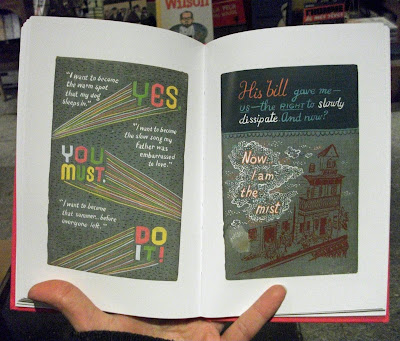 Wilson
"I want to become
the warm spot
that my dog
sleeps in."
YES
"I want to become
the slow song my
father was
embarrassed
to love."
YOU
MUST.
"I want to become
that summer... before
everyone left."
DO
IT!
His bill gave me—
US—the RIGHT to slowly
dissipate And now?
Now
I am
the
mist.